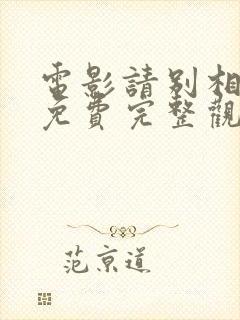 電影請別相
免費完整觀
范京道